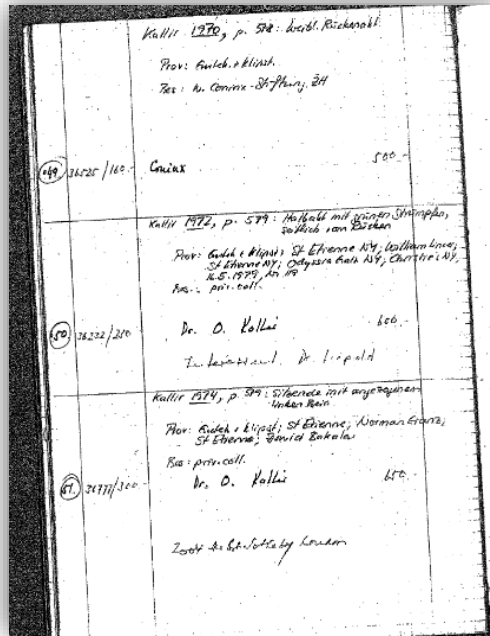 Kallir 1970, p. 578: Weibl. Rückenakt
Prov: Gutek. + Klipst.
Bes: W. Coninx-Stiftung, ZH
49 36525/160.- Coninx 500.-
Kallir 1972, p. 579: Halbakt mit grünen Strümpfen,
seitlich vom Rücken
Prov: Gutek + Klipst; St Etienne NY; William
St Etienne NY; Odyssia Gall. NY; Christie's NY,
16.5.1979, No 118
Bes.: priv. coll.
50 36232/250 Dr. O. Kallir 600.-
Interessent Dr. Leopold
Kallir 1974, p. 579: Sitzende mit angezogenem
linken Bein
Prov: Gutek + Klipst; St Etienne; Norman Granz;
St Etienne; David Bakalar
Bes: priv. coll.
51. /300 Dr. O. Kallir 650.-
Sotheby London